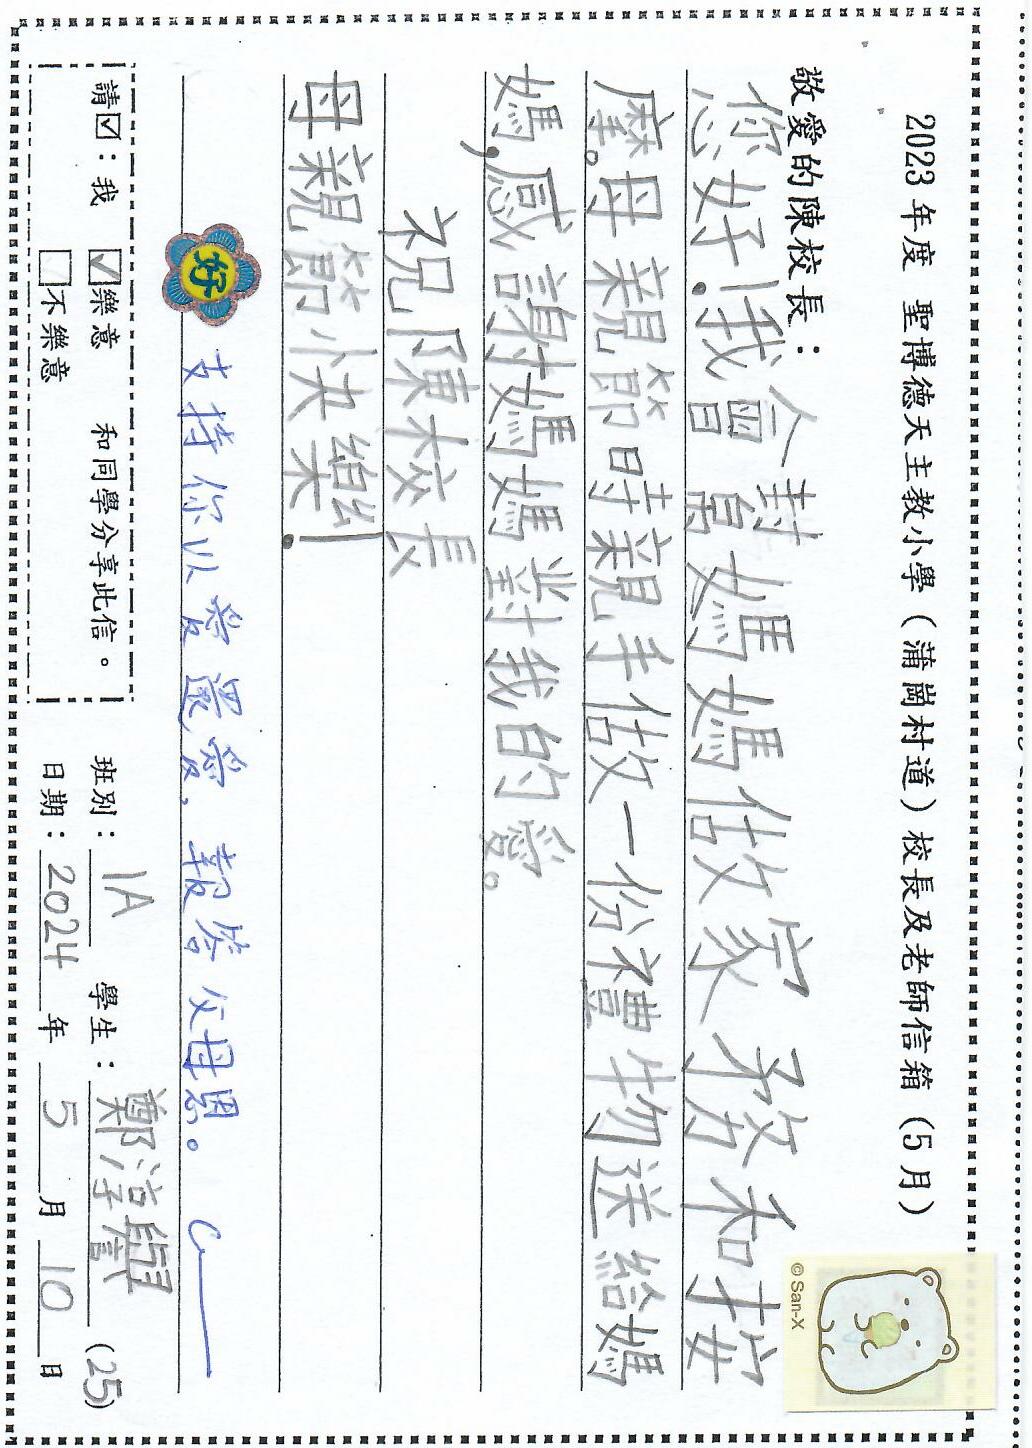 2023年度　聖博德天主教小學（蒲崗村道）校長及老師信箱（5月）
敬愛的陳校長：
您好！我會幫媽媽做家務和按
摩。母親節時親手做一份禮物送給媽
媽，感謝媽媽對我的愛。
祝陳校長
母親節快樂！
好 支持你以愛還愛，報答父母恩。
請☑：我 ☑樂意 □不樂意 和同學分享此信。
班別：1A 學生：鄭淳 (25)
日期：2024年5月10日
© San-X